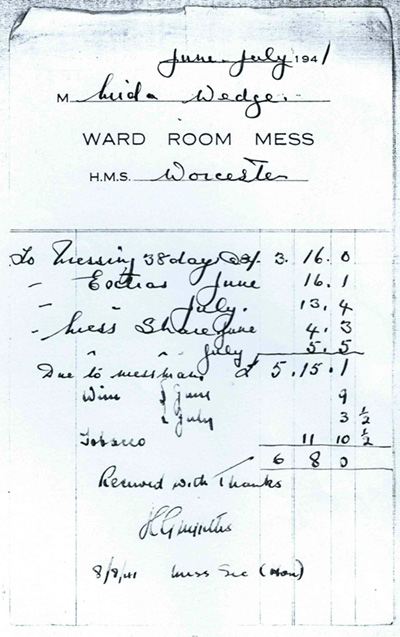 June-July 1941
M Wedge.
WARD ROOM MESS
H.M.S. Worcester
To Messing 38 days @ 2/. 3. 16. 0
" Extras June 16. 1
" July. 13. 4
" Mess Share June 4. 3
" " July 5. 5
Due to messman. £ 5. 15. 1
Wine { June 9
{ July 3 ½
Tobacco 11 10 ½
6 8 0
Received with Thanks
8/8/41 Mess Sec (Hon)